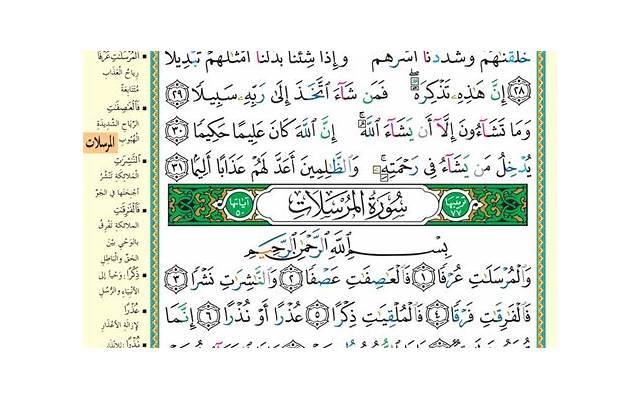 خَلَقْنَٰهُمْ وَشَدَدْنَآ أَسْرَهُمْ وَإِذَا شِئْنَا بَدَّلْنَآ أَمْثَٰلَهُمْ تَبْدِيلًا
٢٨ إِنَّ هَٰذِهِۦ تَذْكِرَةٌ فَمَن شَآءَ ٱتَّخَذَ إِلَىٰ رَبِّهِۦ سَبِيلًا ٢٩
وَمَا تَشَآءُونَ إِلَّآ أَن يَشَآءَ ٱللَّهُ إِنَّ ٱللَّهَ كَانَ عَلِيمًا حَكِيمًا ٣٠
يُدْخِلُ مَن يَشَآءُ فِى رَحْمَتِهِۦ وَٱلظَّٰلِمِينَ أَعَدَّ لَهُمْ عَذَابًا أَلِيمًا ٣١
ترتيبها ٧٧ سُورَةُ الْمُرْسَلَات آياتها ٥٠
بِسْمِ ٱللَّهِ ٱلرَّحْمَٰنِ ٱلرَّحِيمِ
وَٱلْمُرْسَلَٰتِ عُرْفًا ١ فَٱلْعَٰصِفَٰتِ عَصْفًا ٢ وَٱلنَّٰشِرَٰتِ نَشْرًا ٣
فَٱلْفَٰرِقَٰتِ فَرْقًا ٤ فَٱلْمُلْقِيَٰتِ ذِكْرًا ٥ عُذْرًا أَوْ نُذْرًا ٦ إِنَّمَا
الْمُرْسَلَٰتِ عُرْفًا
رِيَاحُ الْعَذَابِ
مُتَتَابِعَةً
فَٱلْعَٰصِفَٰتِ
الرِّيَاحِ الشَّدِيدَةِ
الْهُبُوبِ
المرسلات
النَّٰشِرَٰتِ
الملائكة تَنْشُرُ
أجنحتها في الجَوّ
فَٱلْفَٰرِقَٰتِ
الملائكة تَفْرُقُ
بالوَحْيِ بَيْنَ
الحَقِّ والْبَاطِلِ
ذِكْرًا: وَحْياً إلى
الأنبياء والرُّسُلِ
عُذْرًا
لإزالة الأعْذَارِ
نُذْرًا: للإنذار